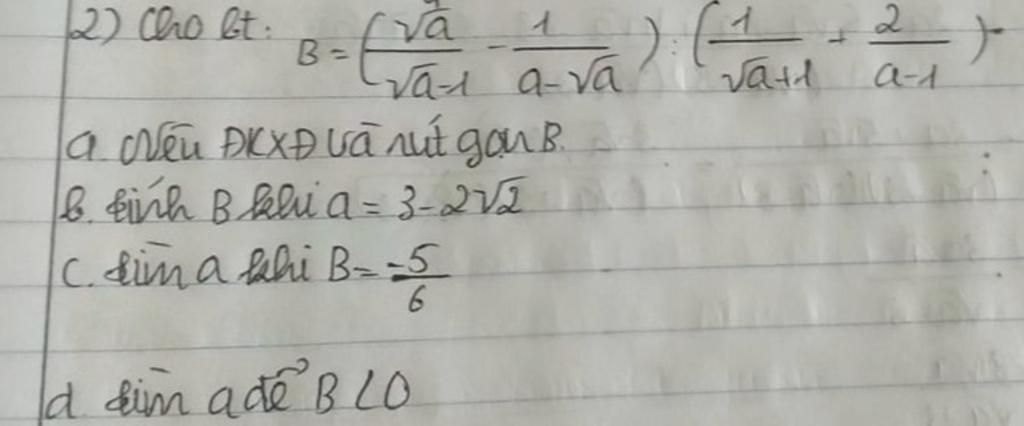 2) Cho bt: B = (√a/(√a-1) - 1/(a-√a)) : (1/(√a+1) + 2/(a-1))
a. Nêu ĐKXĐ và rút gọn B.
b. tính B khi a = 3-2√2
c. tìm a khi B = -5/6
d. tìm a để B < 0